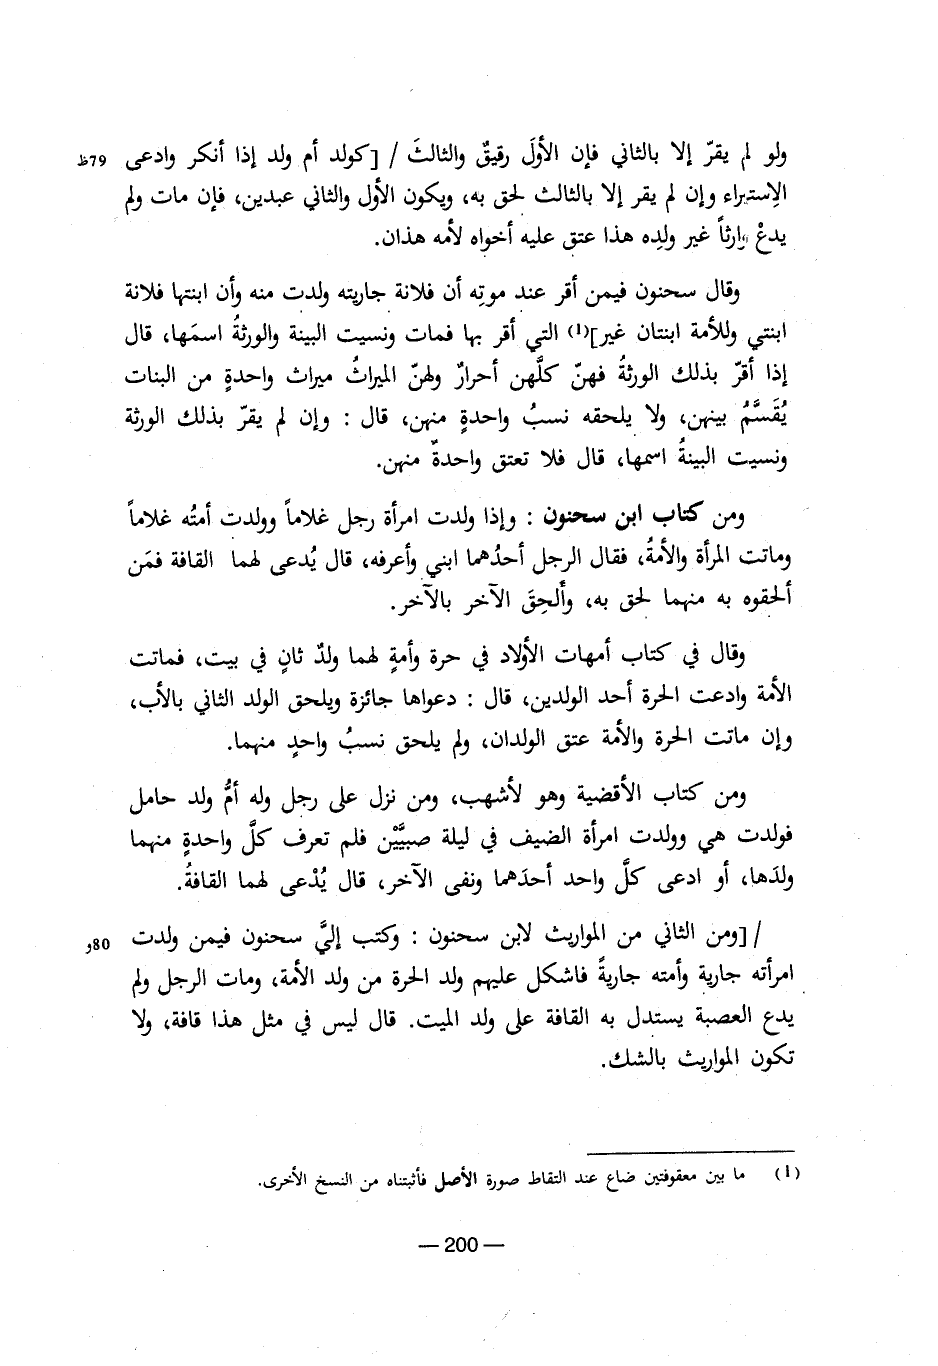 ولو لم يقرّ إلا بالثاني فإن الأولَ رقيقٌ والثالثَ / [كولد أم ولد إذا أنكر وادعى 79ظ
الإستبراء وإن لم يقر إلا بالثالث لحق به، ويكون الأول والثاني عبدين، فإن مات ولم
يدعْ وارثاً غير ولدِه هذا عتق عليه أخواه لأمه هذان.
وقال سحنون فيمن أقر عند موتِه أن فلانة جاريته ولدت منه وأن ابنتها فلانة
ابنتي وللأمة ابنتان غير](1) التي أقر بها فمات ونسيت البينة والورثةُ اسمَها، قال
إذا أقرّ بذلك الورثةُ فهنّ كلَّهن أحرارٌ ولهنّ الميراثُ ميراث واحدةٍ من البنات
يُقَسَّمُ بينهن، ولا يلحقه نسبُ واحدةٍ منهن، قال : وإن لم يقرّ بذلك الورثة
ونسيت البينةُ اسمها، قال فلا تعتق واحدةٌ منهن.
ومن كتاب ابن سحنون : وإذا ولدت امرأة رجل غلاماً وولدت أمتُه غلاماً
وماتت المرأة والأمةُ، فقال الرجل أحدُهما ابني وأعرفه، قال يُدعى لهما القافة فمَن
ألحقوه به منهما لحق به، وأُلحِقَ الآخر بالآخر.
وقال في كتاب أمهات الأولاد في حرة وأمةٍ لهما ولدٌ ثانٍ في بيت، فماتت
الأمة وادعت الحرة أحد الولدين، قال : دعواها جائزة ويلحق الولد الثاني بالأب،
وإن ماتت الحرة والأمة عتق الولدان، ولم يلحق نسبُ واحدٍ منهما.
ومن كتاب الأقضية وهو لأشهب، ومن نزل على رجل وله أمُّ ولد حامل
فولدت هي وولدت امرأة الضيف في ليلة صبيَّيْن فلم تعرف كلَّ واحدةٍ منهما
ولدَها، أو ادعى كلَّ واحد أحدَهما ونفى الآخر، قال يُدْعى لهما القافةُ.
/ [ومن الثاني من المواريث لابن سحنون : وكتب إليَّ سحنون فيمن ولدت 80و
امرأته جارية وأمته جاريةً فاشكل عليهم ولد الحرة من ولد الأمة، ومات الرجل ولم
يدع العصبة يستدل به القافة على ولد الميت. قال ليس في مثل هذا قافة، ولا
تكون المواريث بالشك.
(1) ما بين معقوفتين ضاع عند التقاط صورة الأصل فأثبتناه من النسخ الأخرى.
— 200 —